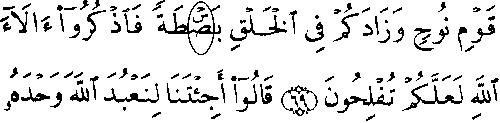 قَوْمِ نُوحٍ وَزَادَكُمْ فِي ٱلْخَلْقِ بَصْۜطَةً فَٱذْكُرُوٓا۟ ءَالَآءَ
ٱللَّهِ لَعَلَّكُمْ تُفْلِحُونَ ٦٩ قَالُوٓا۟ أَجِئْتَنَا لِنَعْبُدَ ٱللَّهَ وَحْدَهُۥ